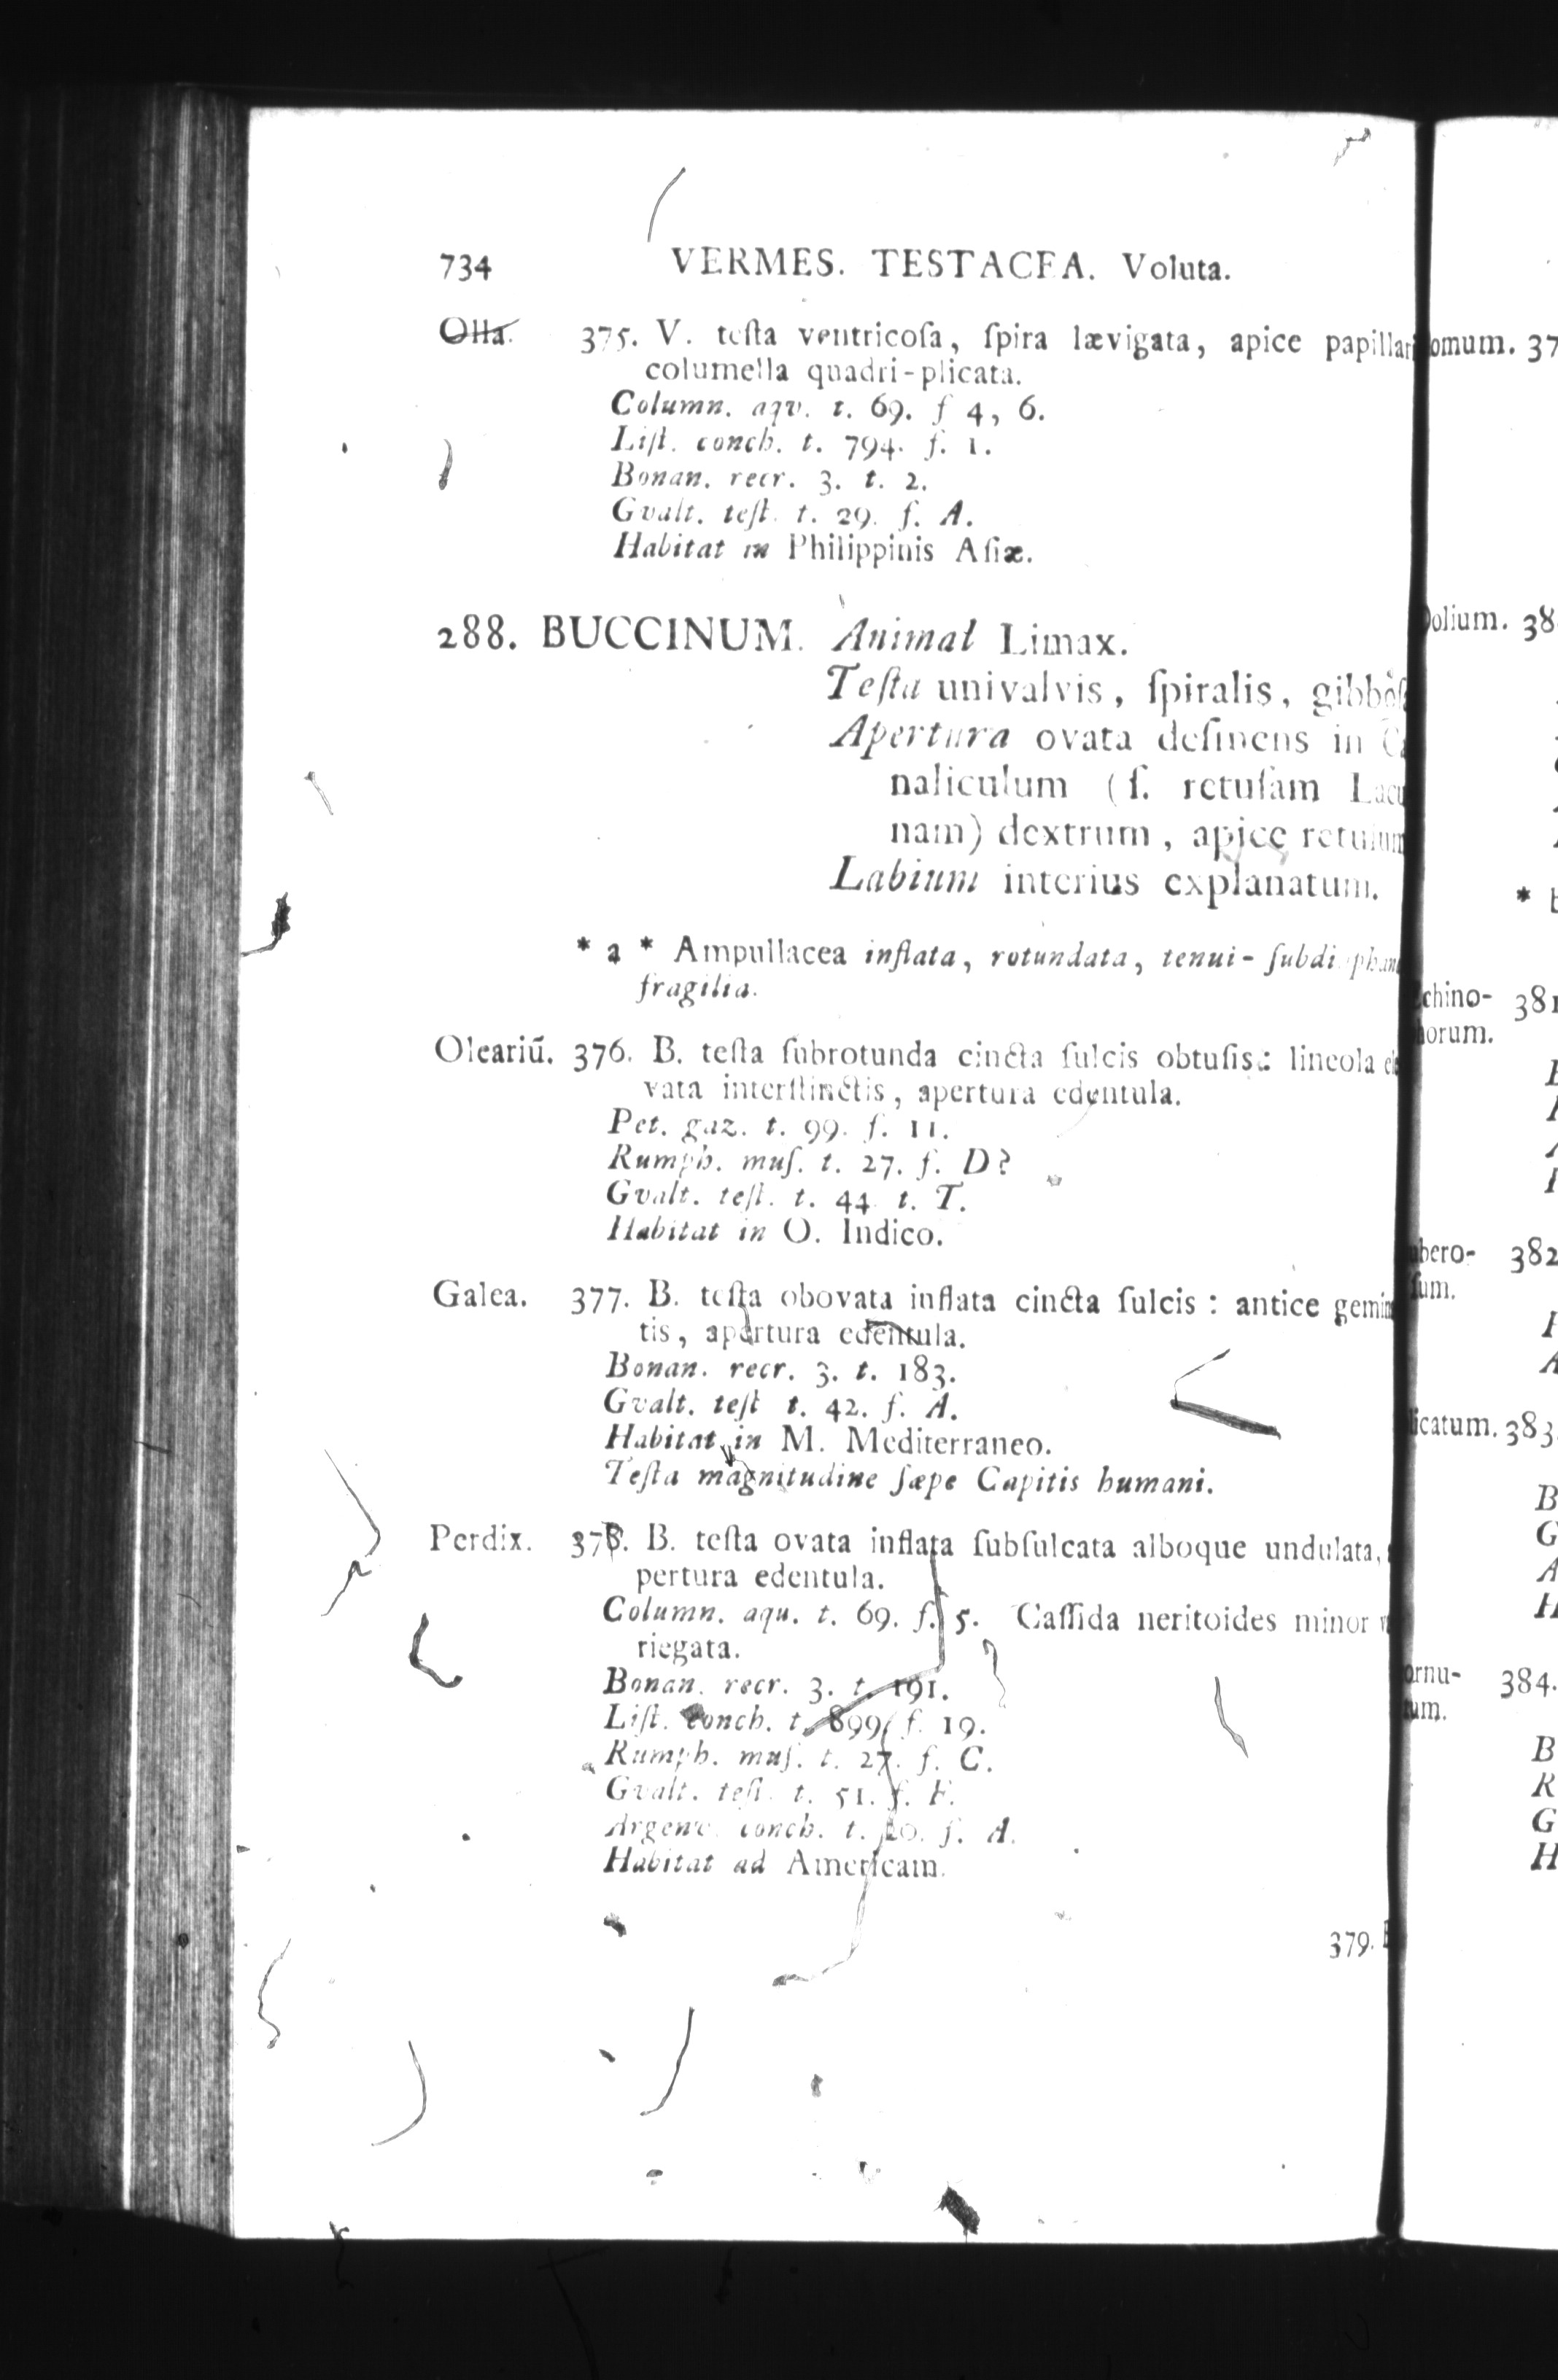 734 VERMES. TESTACEA. Voluta.
Olla. 375. V. teſta ventricoſa, ſpira lævigata, apice papillari
columella quadri-plicata.
Column. aqv. t. 69. f 4, 6.
Liſt. conch. t. 794. f. 1.
Bonan. recr. 3. t. 2.
Gvalt. teſt. t. 29. f. A.
Habitat in Philippinis Aſiæ.
288. BUCCINUM. Animal Limax.
Teſta univalvis, ſpiralis, gibboſ
Apertura ovata deſinens in Ca
naliculum (ſ. retuſam Lacu
nam) dextrum, apice retuſum
Labium interius explanatum.
* a * Ampullacea inflata, rotundata, tenui-ſubdiaphan
fragilia.
Oleariū. 376. B. teſta ſubrotunda cincta ſulcis obtuſis: lineola ele
vata interſtinctis, apertura edentula.
Pet. gaz. t. 99. f. 11.
Rumph. muſ. t. 27. f. D?
Gvalt. teſt. t. 44 t. T.
Habitat in O. Indico.
Galea. 377. B. teſta obovata inflata cincta ſulcis: antice gemin
tis, apertura edentula.
Bonan. recr. 3. t. 183.
Gvalt. teſt t. 42. f. A.
Habitat in M. Mediterraneo.
Teſta magnitudine ſæpe Capitis humani.
Perdix. 378. B. teſta ovata inflata ſubſulcata alboque undulata,
pertura edentula.
Column. aqu. t. 69. f. 5. Caſſida neritoides minor
riegata.
Bonan. recr. 3. t. 191.
Liſt. conch. t. 899 f. 19.
Rumph. muſ. t. 27. f. C.
Gvalt. teſt. t. 51. f. F.
Argenv. conch. t. 20. f. A.
Habitat ad Americam.
379. B
omum. 37
Dolium. 38
* b
chino- 381
horum.
bero- 382
ſum.
licatum. 383
B
G
A
H
ornu- 384.
tum.
B
R
G
H